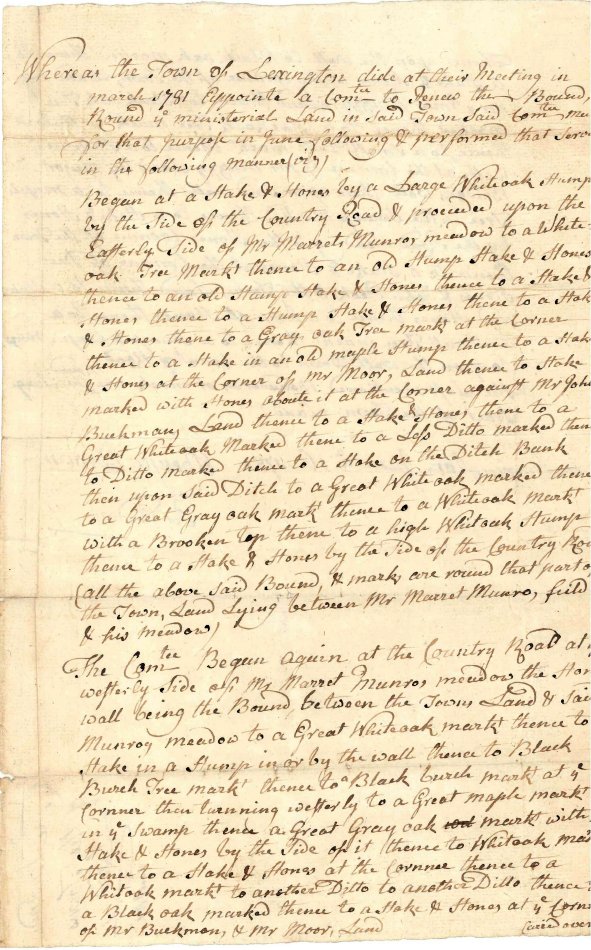 Whereas the Town of Lexington dide at their Meeting in
march 1781 Eppointe a Comtee to Renew the Bound,
Round ye ministerial Land in said Town Said Comtee
for that purpose in June following & performed that
in the following manner (viz)
Began at a Stake & Stones by a Large Whiteoak Stump
by the Side of the Country Road & proceeded upon the
Easterly Side of Mr Marrets Munros meadow to a White-
oak Tree Markt thence to an old Stump Stake & Stones
thence to an old Stump Stake & Stones thence to a Stake &
Stones thence to a Stump Stake & Stones thence to a Stake
& Stones thene to a Gray oak Tree markt at the Corner
thence to a Stake in an old maple Stump thence to a Stake
& Stones at the Corner of Mr Moors Land thence to Stake
marked with Stones aboute it at the Corner against Mr John
Buckmans Land thence to a Stake & Stones thene to a
Great Whiteoak Marked thene to a Less Ditto marked
to Ditto marked thence to a Stake on the Ditch Bank
then upon said Ditch to a Great White oak marked thene
to a Great Gray oak markt thence to a Whiteoak markt
with a Brooken top thene to a high Whitoak Stump
thence to a Stake & Stones by the Side of the Country
(all the above said Bounds & marks are round that part of
the Towns Land Lying between Mr Marret Munros field
& his meadow)
The Comtee Began again at the Country Road at ye
westerly Side of Mr Marret Munros meadow the
wall being the Bounds between the Towns Land & Said
Munros meadow to a Great Whiteoak markt thence to
Stake in a Stump in or by the wall thence to Black
Burch Tree markt thence to a Black burch markt at ye
Cornner then turnning westerly to a Great maple markt
in ye Swamp thence a Great Gray oak markt with
Stake & Stones by the Side of it thence to Whitoak
thence to a Stake & Stones at the Cornner thence to a
Whitoak markt to another Ditto to another Ditto thence
a Black oak marked thence to a Stake & Stones at ye
of Mr Buckmans & Mr Moors Land
over